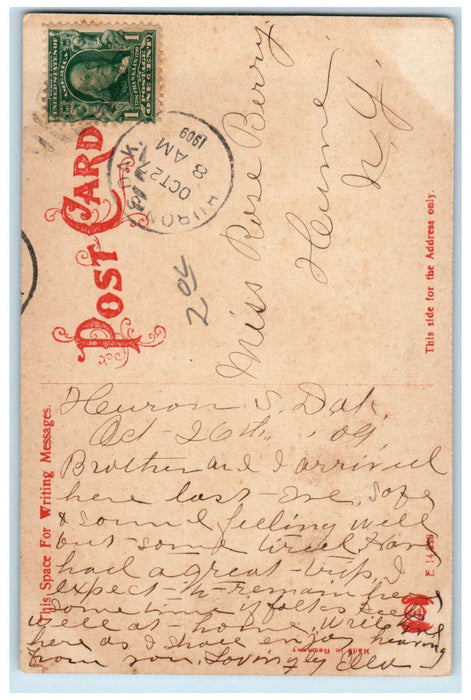 UNITED STATES OF AMERICA
1 1
POSTAGE
ONE CENT
HURON, S. DAK.
OCT 27
8 AM
1909
POST CARD
Miss Rose Berry
Hume
N.Y.
20¢
This side for the Address only.
This Space For Writing Messages.
Huron S. Dak,
Oct - 26th, 09,
Brother and I arrived
here last - eve, safe
& sound feeling well
but - some tired. &
had a great - trip, I
expect - to remain here
some time if folks
well at - home. Write
here as I shall enjoy hearing
from you. Lovingly Ella -
Made in Germany